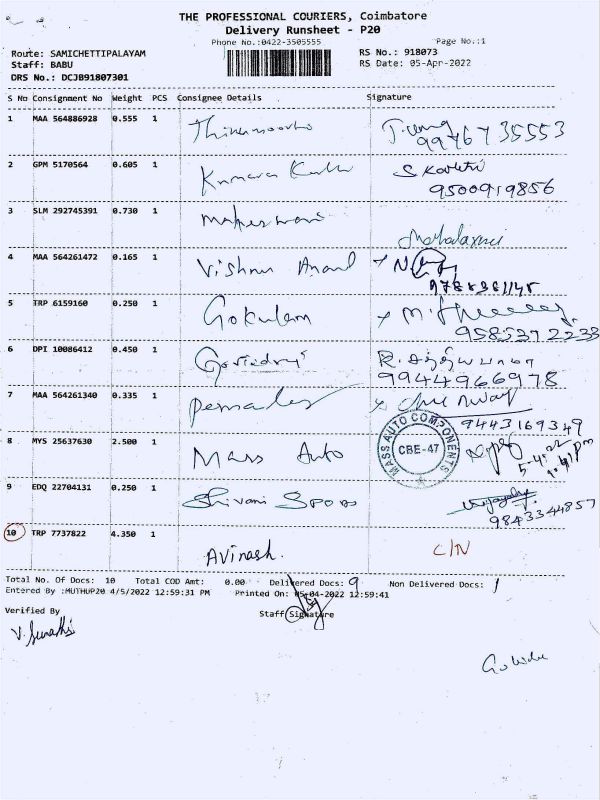 THE PROFESSIONAL COURIERS, Coimbatore
Delivery Runsheet - P20
Phone No.:0422-3505555 Page No.:1
Route: SAMICHETTIPALAYAM RS No.: 918073
Staff: BABU RS Date: 05-Apr-2022
DRS No.: DCJB91807301
S No Consignment No Weight PCS Consignee Details Signature
1 MAA 564886928 0.555 1
99767 35553
2 GPM 5170564 0.605 1 Kumara
9500919856
3 SLM 292745391 0.730 1 Maheswari
Mahalaxmi
4 MAA 564261472 0.165 1 Vishnu Anand
5 TRP 6159160 0.250 1 Gokulam
6 DPI 10086412 0.450 1
99449 66978
7 MAA 564261340 0.335 1
9443169349
8 MYS 25637630 2.500 1 Mass Auto
MASS AUTO COMPONENTS
CBE-47
5-4-22
9 EDQ 22704131 0.250 1 Shivani
9843344857
10 TRP 7737822 4.350 1 Avinash. C/N
Total No. Of Docs: 10 Total COD Amt: 0.00 Delivered Docs: 9 Non Delivered Docs: 1
Entered By :MUTHUP20 4/5/2022 12:59:31 PM Printed On: 05-04-2022 12:59:41
Verified By Staff Signature